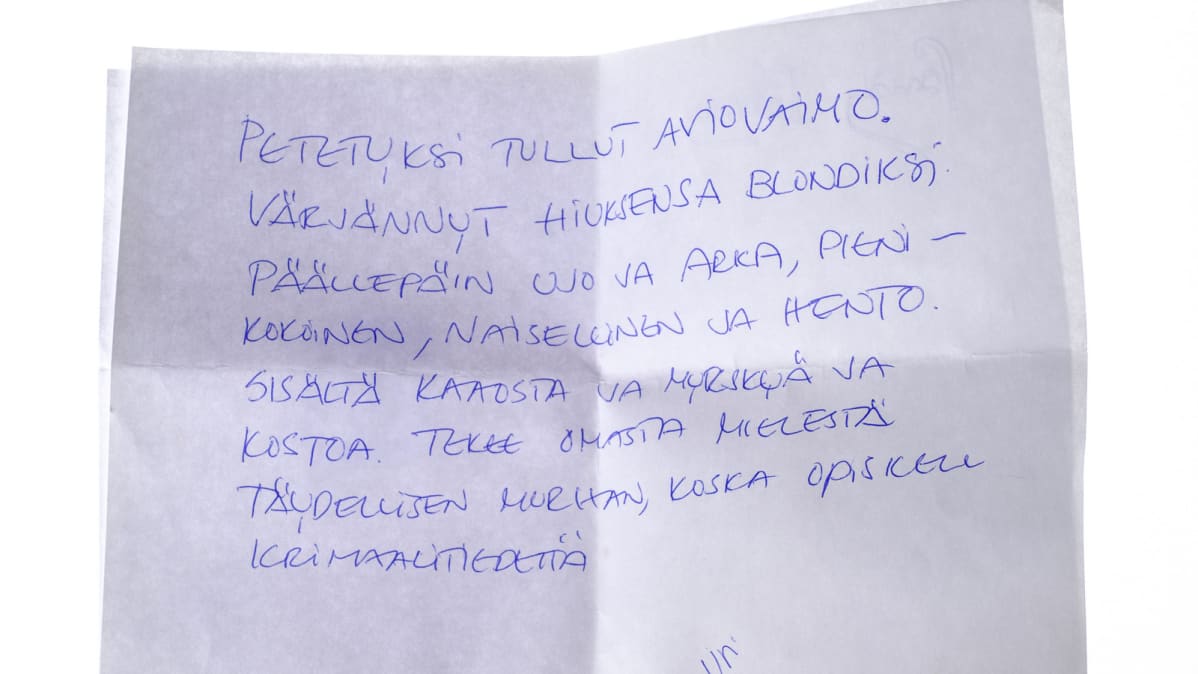 PETETYKSI TULLUT AVIOVAIMO.
VÄRJÄNNYT HIUKSENSA BLONDIKSI.
PÄÄLLEPÄIN UJO JA ARKA, PIENI-
KOKOINEN, NAISELLINEN JA HENTO.
SISÄLTÄ KAAOSTA JA MYRSKYÄ JA
KOSTOA. TEKEE OMASTA MIELESTÄ
TÄYDELLISEN MURHAN, KOSKA OPISKELI
KRIMAALITIEDETTÄ